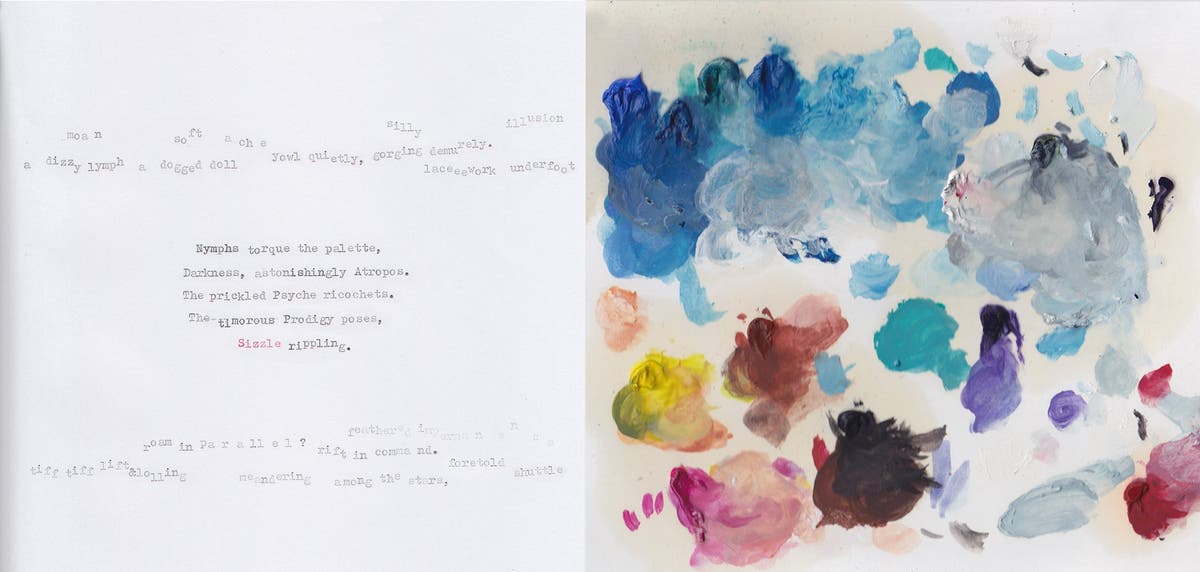 moan soft ache silly illusion
a dizzy lymph a dogged doll yowl quietly, gorging demurely. laceeework underfoot
Nymphs torque the palette,
Darkness, astonishingly Atropos.
The prickled Psyche ricochets.
The-timorous Prodigy poses,
Sizzle rippling.
roam in Parallel? rift in command. feathered impermanence
tiff tiff lift&lolling meandering among the stars, foretold shuttle